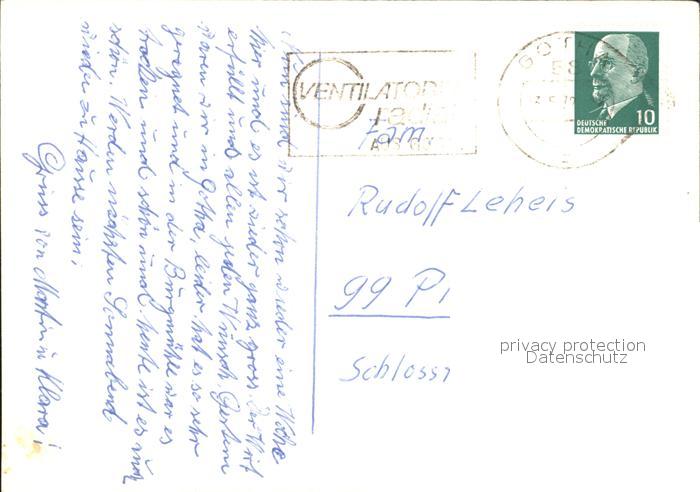 Nun sind wir schon wieder eine Woche
hier und es ist wieder ganz gross. Der Wirt
erfüllt uns allen jeden Wunsch. Gestern
waren wir in Gotha, leider hat es so sehr
geregnet und in der Burgmühle war es
trocken und schön und heute ist es nur
schön. Werden nächsten Sonnabend
wieder zu Hause sein.
Gruss von Martin u Klara!
VENTILATOREN
radial
AUS GOTHA
GOTHA
58
DEUTSCHE
DEMOKRATISCHE REPUBLIK
10
Fam.
Rudolf Leheis
99 Pl
Schloss
privacy protection
Datenschutz